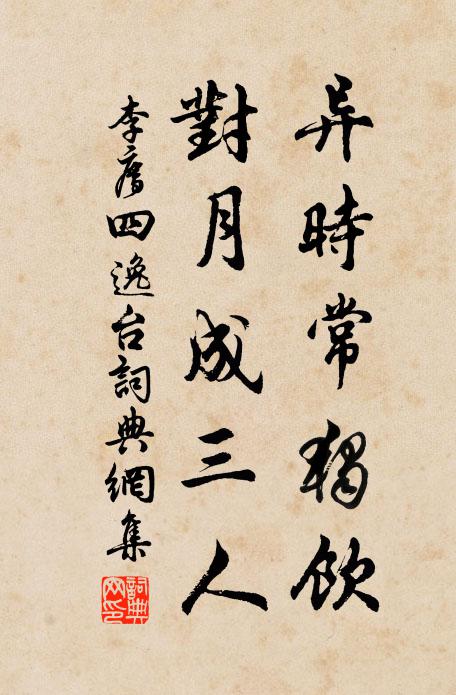 异時常獨飲
對月成三人
李廌四逸台詞典網集
詞典
网印